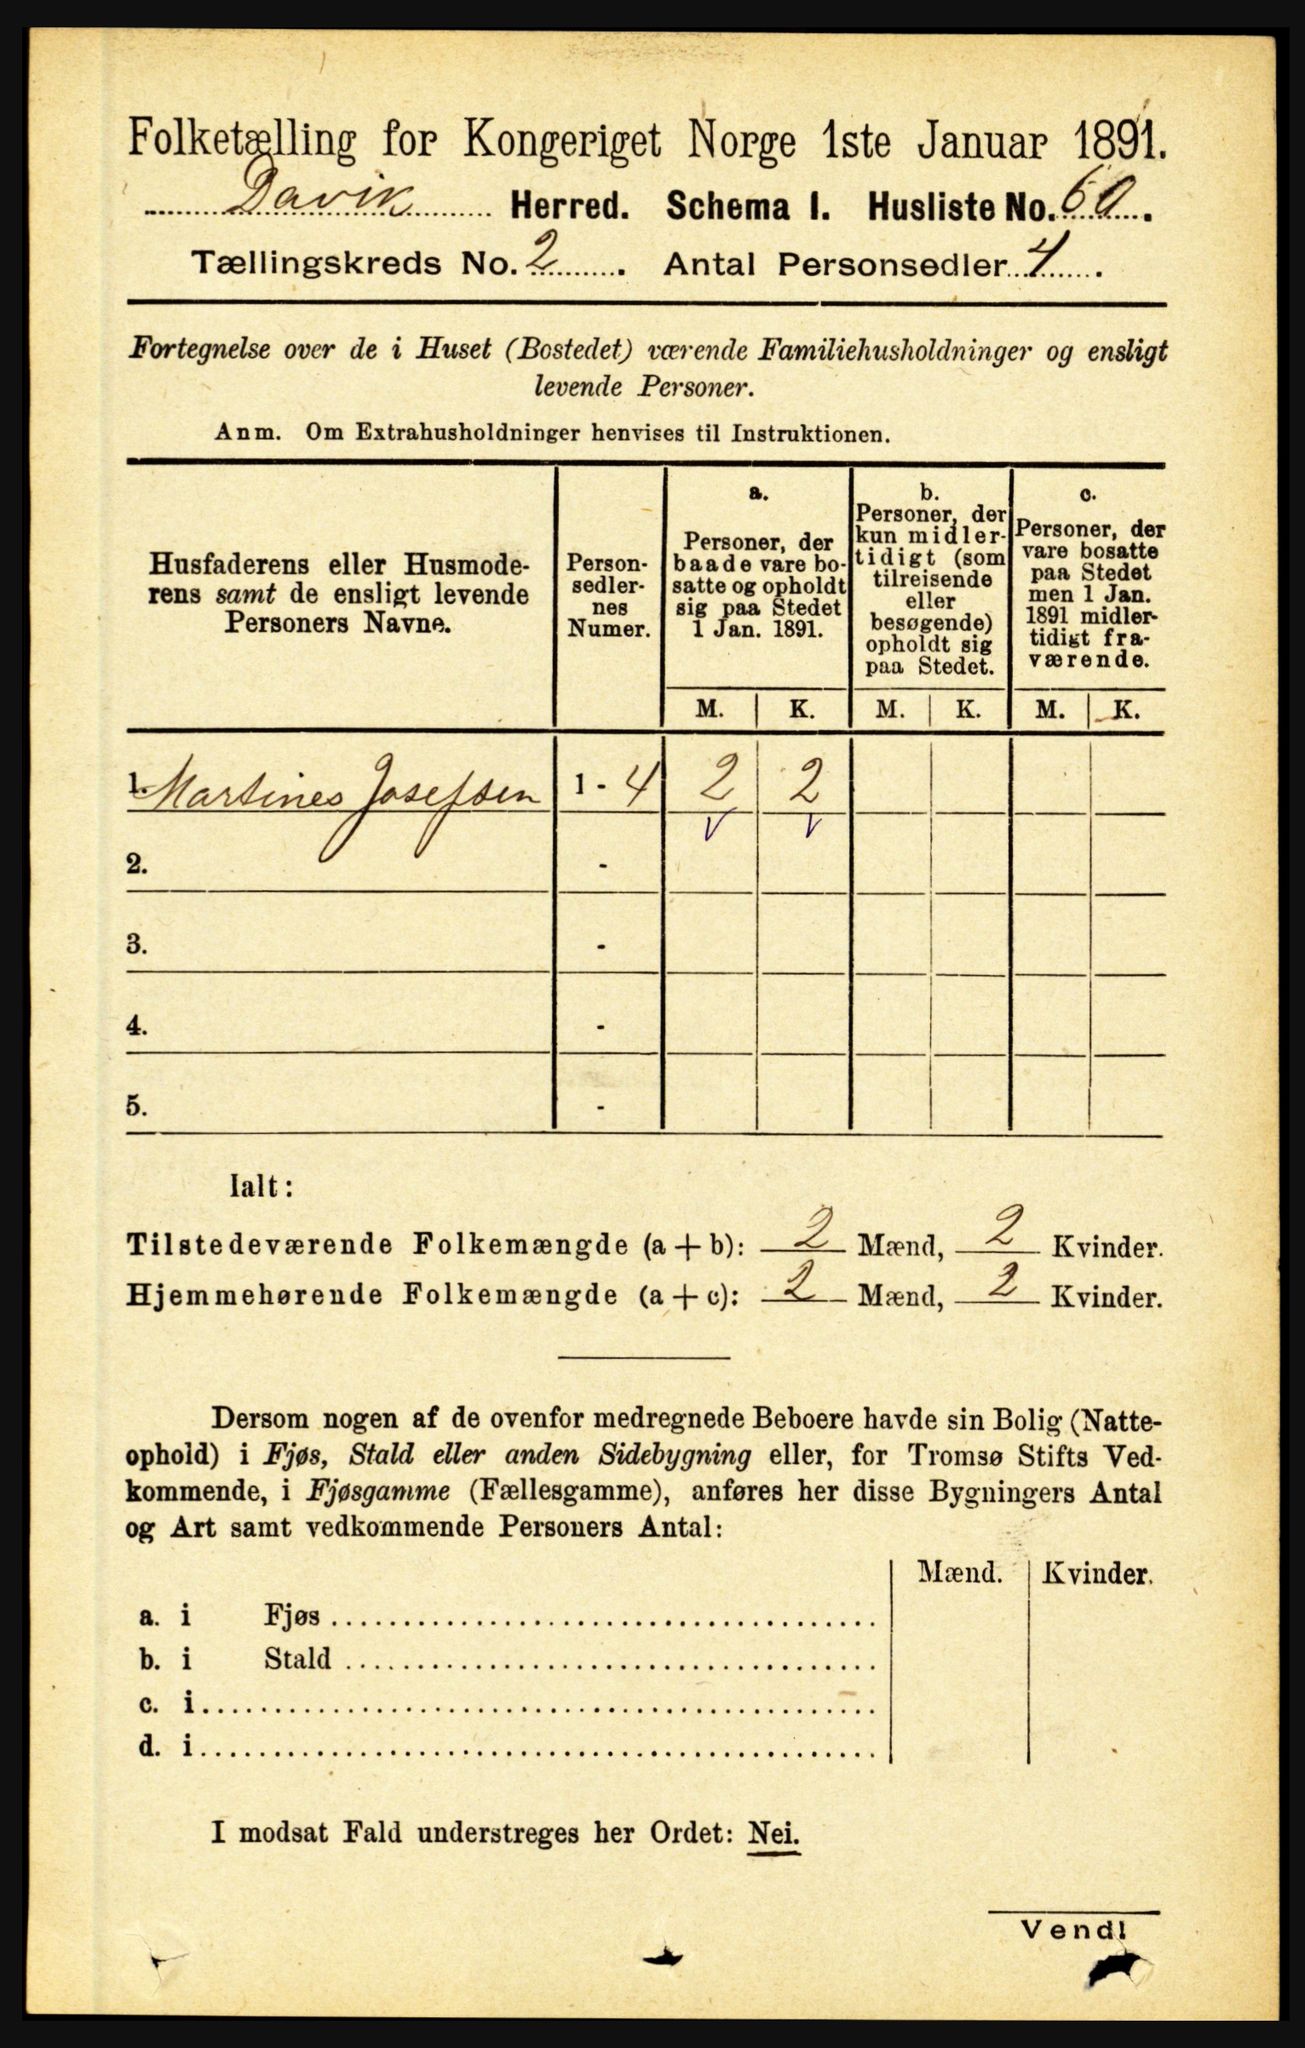 Folketælling for Kongeriget Norge 1ste Januar 1891.
Davik Herred. Schema I. Husliste No. 60.
Tællingskreds No. 2. Antal Personsedler 4.
Fortegnelse over de i Huset (Bostedet) værende Familiehusholdninger og ensligt
levende Personer.
Anm. Om Extrahusholdninger henvises til Instruktionen.
Husfaderens eller Husmode-
rens samt de ensligt levende
Personers Navne.
Person-
sedler-
nes
Numer.
a.
Personer, der
baade vare bo-
satte og opholdt
sig paa Stedet
1 Jan. 1891.
b.
Personer, der
kun midler-
tidigt (som
tilreisende
eller
besøgende)
opholdt sig
paa Stedet.
c.
Personer, der
vare bosatte
paa Stedet
men 1 Jan.
1891 midler-
tidigt fra-
værende.
M. K. M. K. M. K.
1. Martines Josefsen 1 - 4 2 2
2. -
3. -
4. -
5. -
Ialt:
Tilstedeværende Folkemængde (a + b): 2 Mænd, 2 Kvinder.
Hjemmehørende Folkemængde (a + c): 2 Mænd, 2 Kvinder.
Dersom nogen af de ovenfor medregnede Beboere havde sin Bolig (Natte-
ophold) i Fjøs, Stald eller anden Sidebygning eller, for Tromsø Stifts Ved-
kommende, i Fjøsgamme (Fællesgamme), anføres her disse Bygningers Antal
og Art samt vedkommende Personers Antal:
Mænd. Kvinder.
a. i Fjøs
b. i Stald
c. i
d. i
I modsat Fald understreges her Ordet: Nei.
Vend!